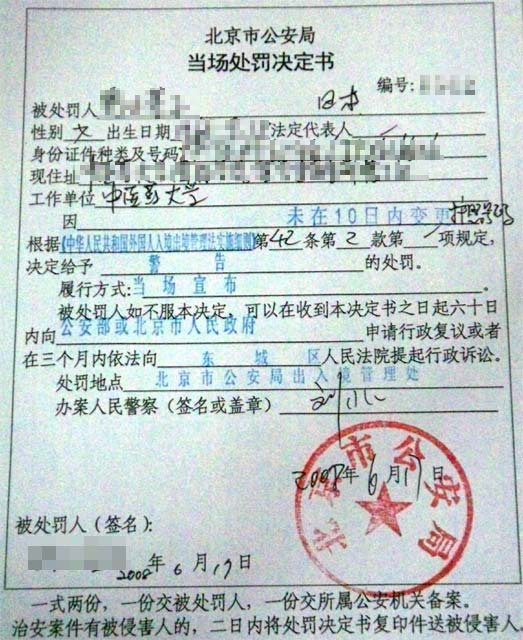 北京市公安局
当场处罚决定书
编号:
被处罚人 日本
性别 女 出生日期 法定代表人
身份证件种类及号码
现住址
工作单位 中医药大学
因 未在10日内变更护照号码
根据《中华人民共和国外国人入境出境管理法实施细则》第42条第2款第 项规定,
决定给予 警告 的处罚。
履行方式: 当场宣布
被处罚人如不服本决定,可以在收到本决定书之日起六十日
内向 公安部或北京市人民政府 申请行政复议或者
在三个月内依法向 东城区 人民法院提起行政诉讼。
处罚地点 北京市公安局出入境管理处
办案人民警察(签名或盖章)
北京市公安局
2008年6月17日
被处罚人(签名):
2008年6月17日
一式两份,一份交被处罚人,一份交所属公安机关备案。
治安案件有被侵害人的,二日内将处罚决定书复印件送被侵害人。